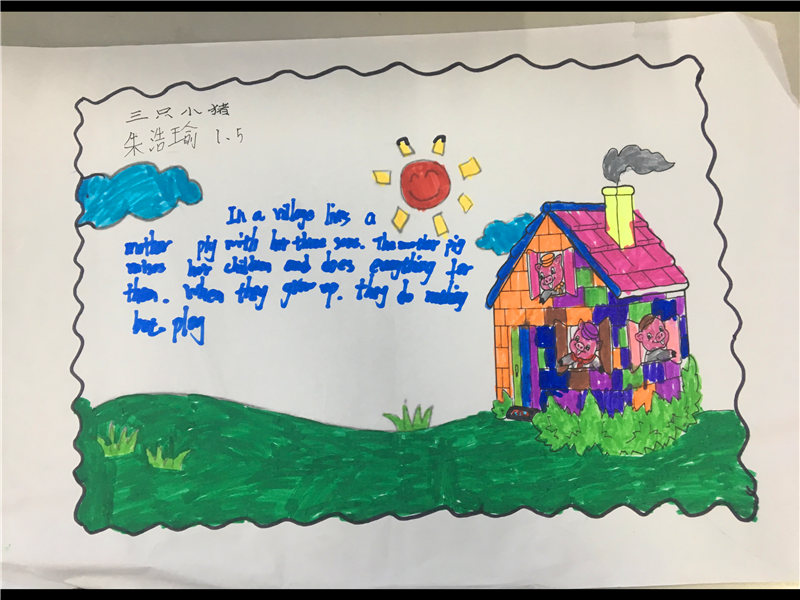 三只小猪
朱浩瑜 1.5
In a village lives a
mother pig with her three sons. The mother pig
raises her children and does everything for
them. When they grow up. they do nothing
but play